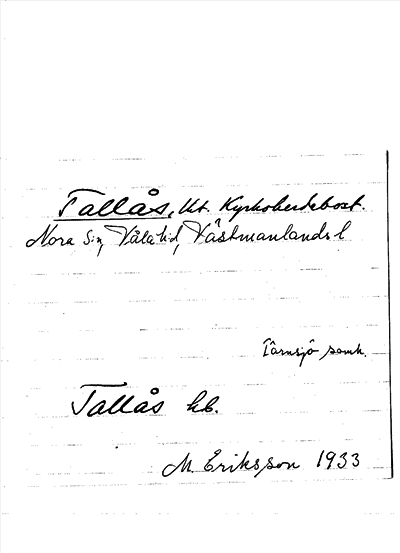 Tallås, kt. Kyrkoherdebost.
Nora sn, Våla hd, Västmanlands l
Tärnsjö samh.
Tallås kb.
M. Eriksson 1933